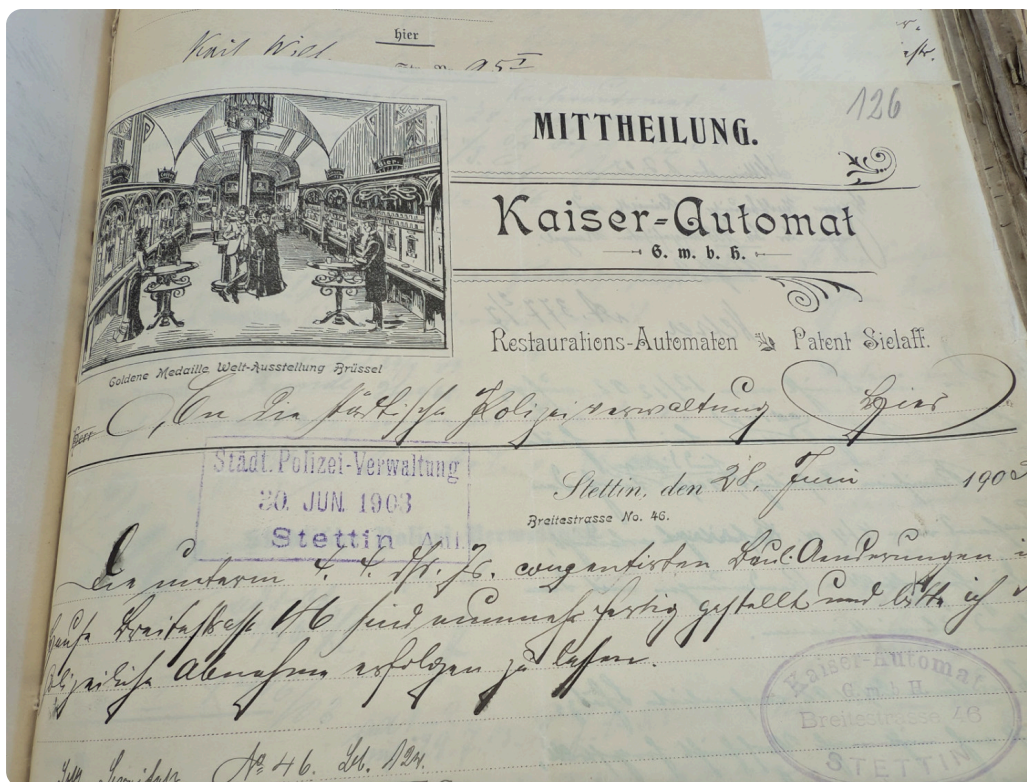 hier
126
MITTHEILUNG.
Kaiser-Automat
G. m. b. H.
Restaurations-Automaten Patent Sielaff.
Goldene Medaille Welt-Ausstellung Brüssel
An die städtische Polizeiverwaltung Hier
Städt. Polizei-Verwaltung
30. JUN. 1903
Stettin
Stettin, den 28. Juni 190
Breitestrasse No. 46.
Die unterm 4. 4. ds. Js. Bau-Aenderungen
Hause Breitestrasse 46 sind nunmehr fertig gestellt und bitte ich
polizeiliche Abnahme erfolgen zu lassen.
Kaiser-Automat
G. m. b. H.
Breitestrasse 46
STETTIN
No 46. Bl. 124.